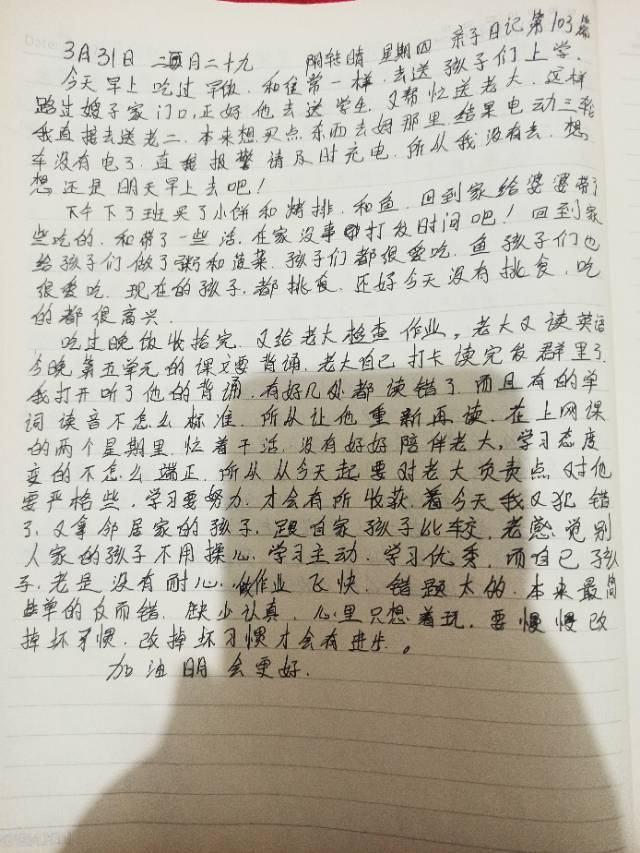 亲子日记第103篇
3月31日 二月二十九 阴转晴 星期四
今天早上吃过早饭.和往常一样.去送孩子们上学.
路过嫂子家门口,正好他去送学生.又帮忙送老大.这样
我直接去送老二.本来想买点东西去好那里.结果电动三轮
车没有电了.直报报警请及时充电.所从我没有去.想
想还是明天早上去吧!
下午下了班买了小饼和烤排.和鱼.回到家给婆婆带了
些吃的.和带了一些活.在家没事打发时间吧!回到家
给孩子们做了粥和菠菜.孩子们都很爱吃.鱼孩子们也
很爱吃.现在的孩子.都挑食.还好今天没有挑食.吃
的都很高兴.
吃过晚饭收拾完.又给老大检查作业。老大又读英语
今晚第五单元的课文要背诵.老大自己打卡读完发群里了.
我打开听了他的背诵.有好几处都读错了.而且有的单
词读音不怎么标准.所从让他重新再读.在上网课
的两个星期里.忙着干活.没有好好陪伴老大,学习态度
变的不怎么端正.所从从今天起要对老大负责点.对他
要严格些.学习要努力.才会有所收获.看今天我又犯错
了.又拿邻居家的孩子.跟自家孩子比较.老感觉别
人家的孩子不用操心.学习主动.学习优秀.而自己孩
子.老是没有耐心.做作业飞快.错题太的.本来最简
单的反而错.缺少认真.心里只想着玩.要慢慢改
掉坏习惯.改掉坏习惯才会有进步。
加油明会更好.